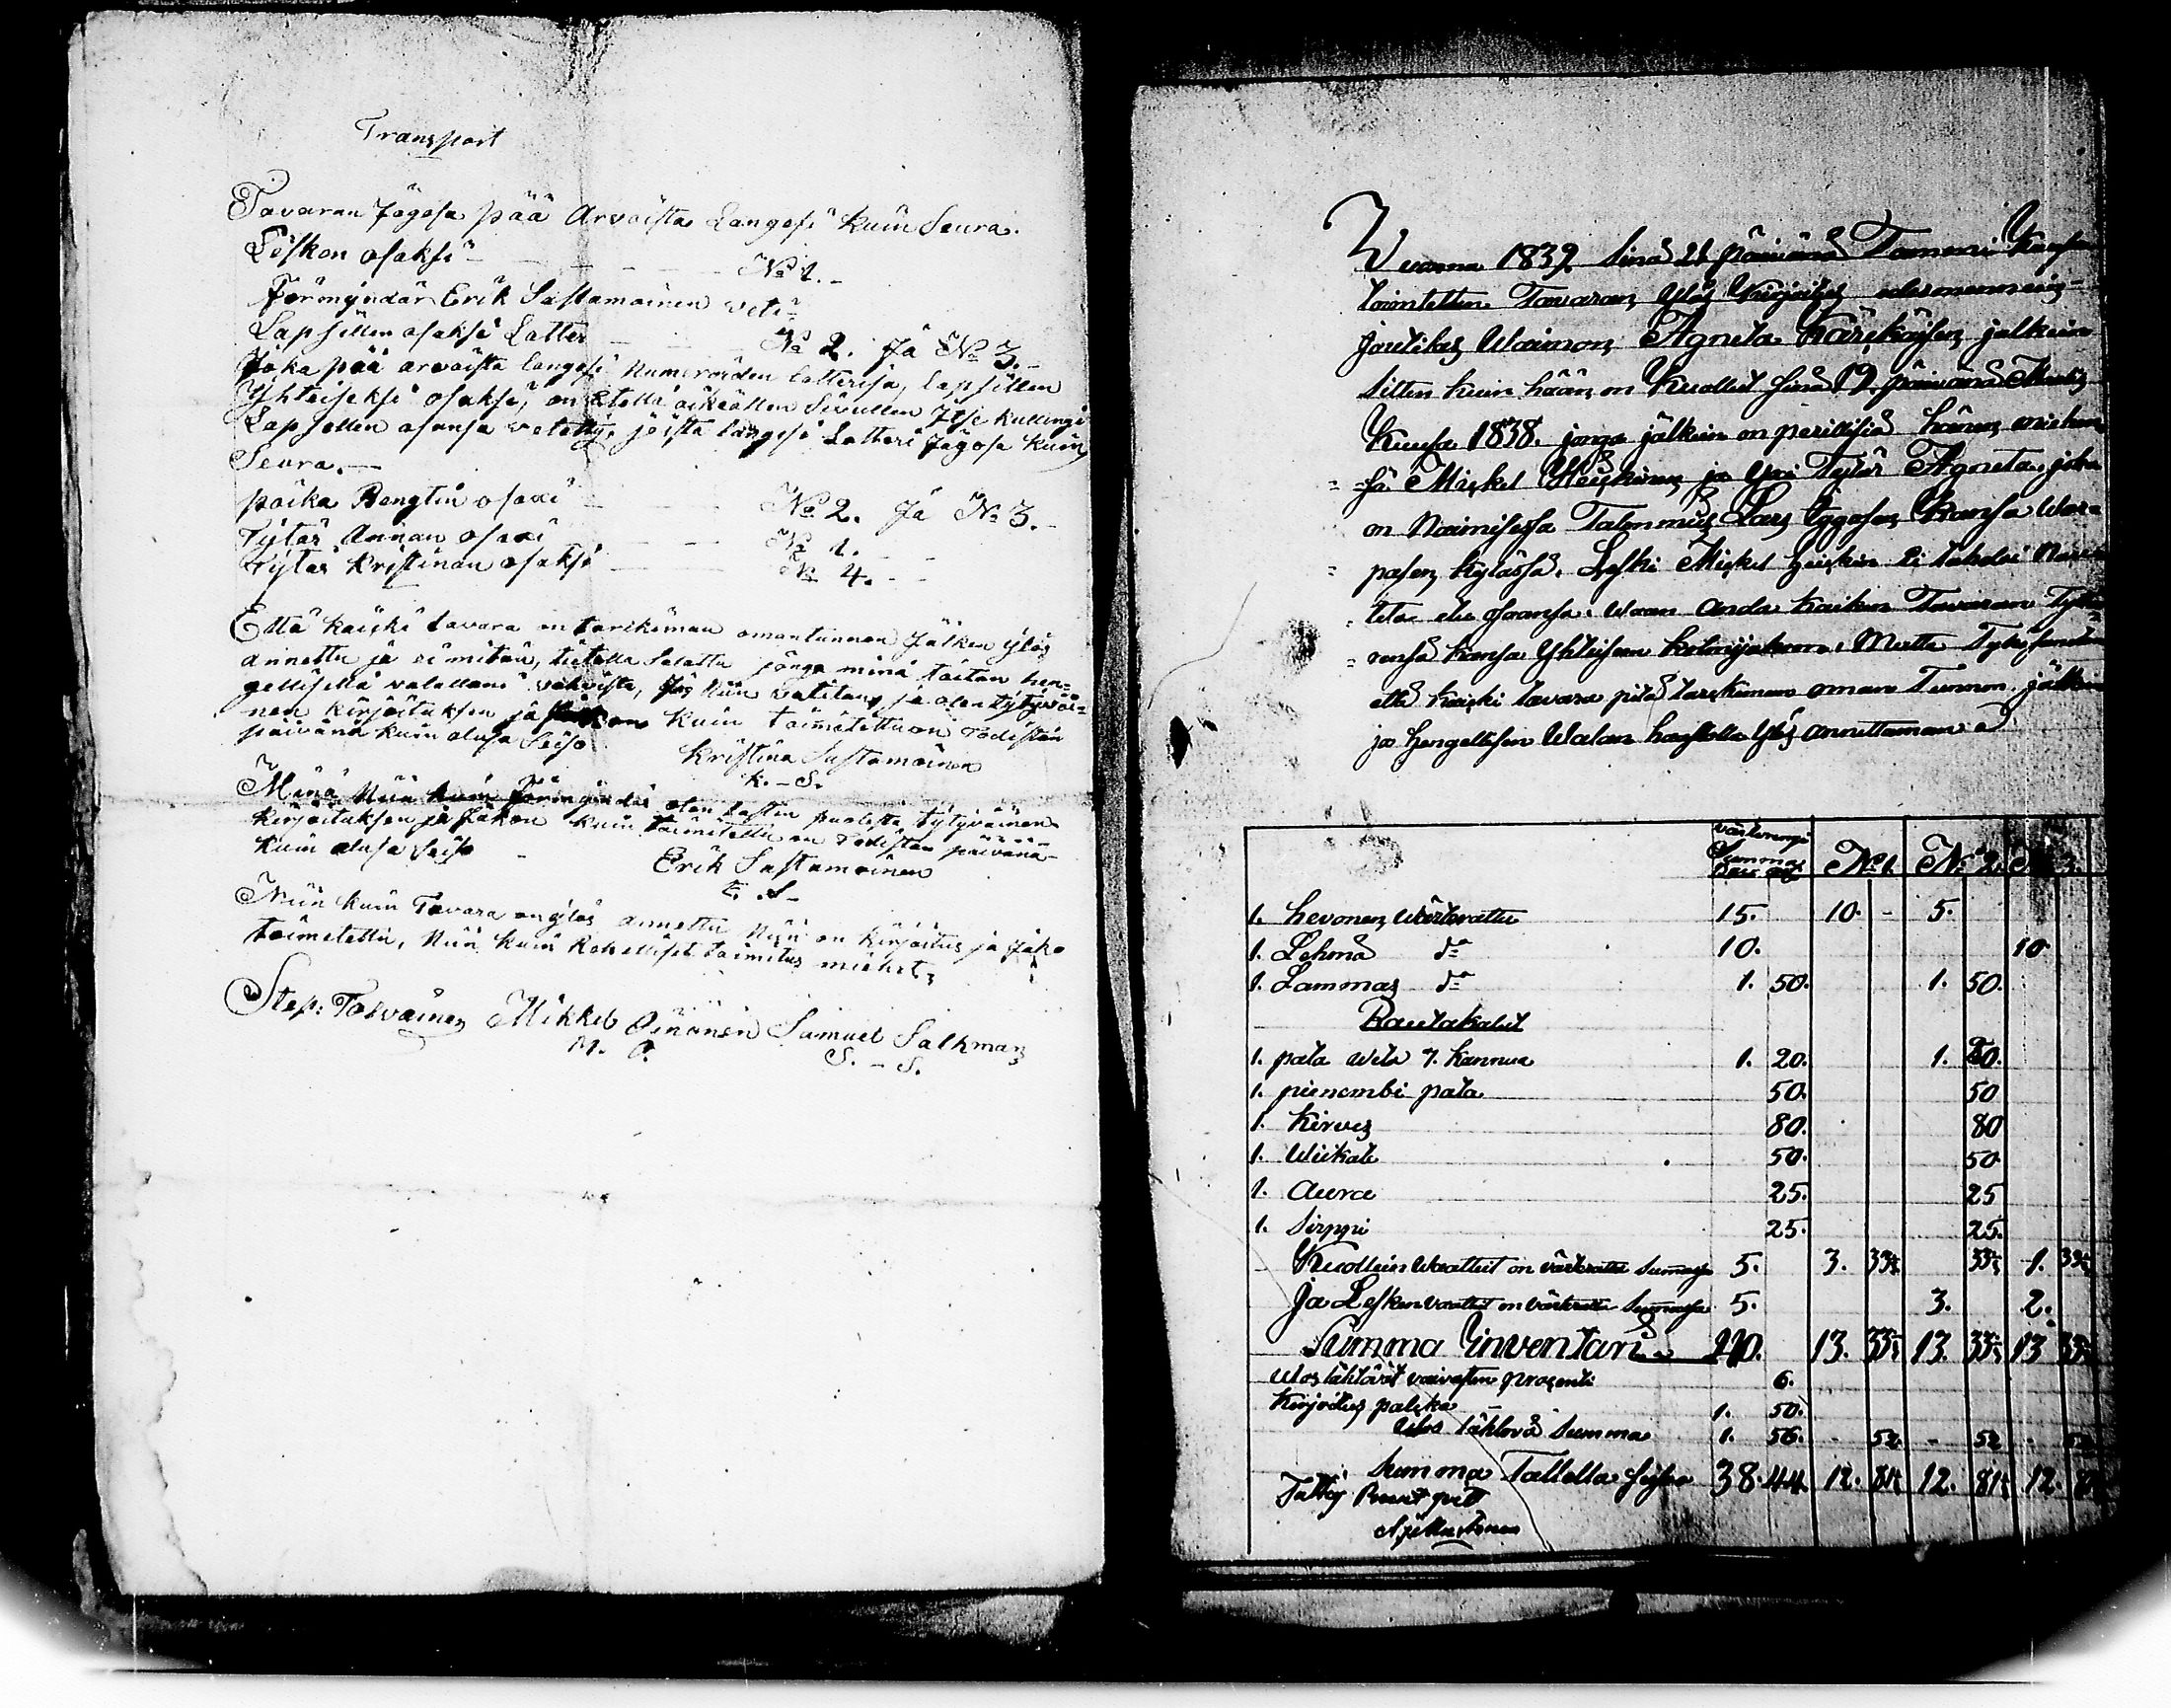 Transport
Tavaran Jagosa pää Arvoista Langesi kuin Seura.
Lesken osaksi - - - - - No 1.-
Förmyndär Erik Sastamoinen veti
Lapsillen osaksi Latter - - - No 2. Ja No 3.-
Joka pää arvoista langesi Numeroiden latterisa, lapsillen
Yhteiseksi osaksi, on Etellä oikiallen Sivullen Itse kullengi
Lapsellen osansa vetetty, joista langesi Latteri Jagosa kuin
Seura.-
poika Bengtin osaxi - - - No 2. Ja No 3.-
Tytär Annan osaxi - - - No 1. - -
Tytär Kristinan osaksi - - - No 4. - -
Että kaicki tavara on tarckiman omantunnon Jälken ylös
annettu ja ei mitän, tietellä salattu jonga minä taitan hen=
gellisellä valallani vahvista, Jos niin vatitan, ja olen tytyväi=
nen kirjoituksen ja kuin toimitettu on Todistan
päivänä kuin alusa Seiso
Kristina Sastamoinen
K.-S.
Minä Niin kuin Förmyndäri olen Lasten puolesta tytyväinen
kirjoituksen ja Jakon kuin toimitettu on Todistan päivänä
kuin alusa Seiso -
Erik Sastamoinen
E. S-
Niin kuin Tavara on ylös annettu Niin on kirjoitus ja Jako
toimitettu, Niin kuin Rehelliset toimitus miehet;
Step: Tolvainen Mikkel Oinonen Samuel Salkman
M. O. S. - S.
Wuonna 1839 Sinä 21 päivänä Tammi Kuusa
toimitettin Tavaran Ylös Kirjoitus edesmennein
joutilas Waimon Agneta Kärckäisen jälkein
sitten kuin hään on Kuollut sinä 19 päivänä
Kuusa 1838. jonga jälkein on perillisiä hänen miehen
sä Mickel Heiskinen ja Yxi Tytär Agneta, joka
on Naimisessa Talonmies Lars Iggosen Kansa Wara
pasen kylässä. Leski Mickel Heiskin Ei tahdoi
teta elu osaansa. Waan Anda Kaiken Tavaran Tyttä
rensä Kansa Yhteiseen Mutta
että kaicki tavara pitä tarckiman oman Tunnon jälkein
ja Hengellisen Walan haastolla Ylös annettaman
Summa No 1. No 2. No 3.
1. hevonen Wärderattu 15. 10. - 5.
1. Lehmä do 10. 10
1. Lammas do 1. 50. 1. 50.
Rautakalut
1. pata vetä 7. kannua 1. 20. 1. 20.
1. pienembi pata 50. 50
1. Kirves 80. 80
1. Wiikate 50. 50
1. Aura 25. 25
1. Sirppi 25. 25.
Kuollein Waatteet on värderattu Summasa 5. 3. 33⅓ 33⅓ 1. 33⅓
Ja Lesken vaatteet on värderattu Summasa 5. 3. 2.
Summa Inventari 40. 13. 33⅓ 13. 33⅓ 13 33⅓
Ulos lähtövät vaivasten prosenti 6.
Kirjoitus palcka - 1. 50.
Ulos lähtövä Summa 1. 56. - 52 - 52 - 52
Summa Tallella 38. 44 12. 81⅓ 12. 81⅓ 12.